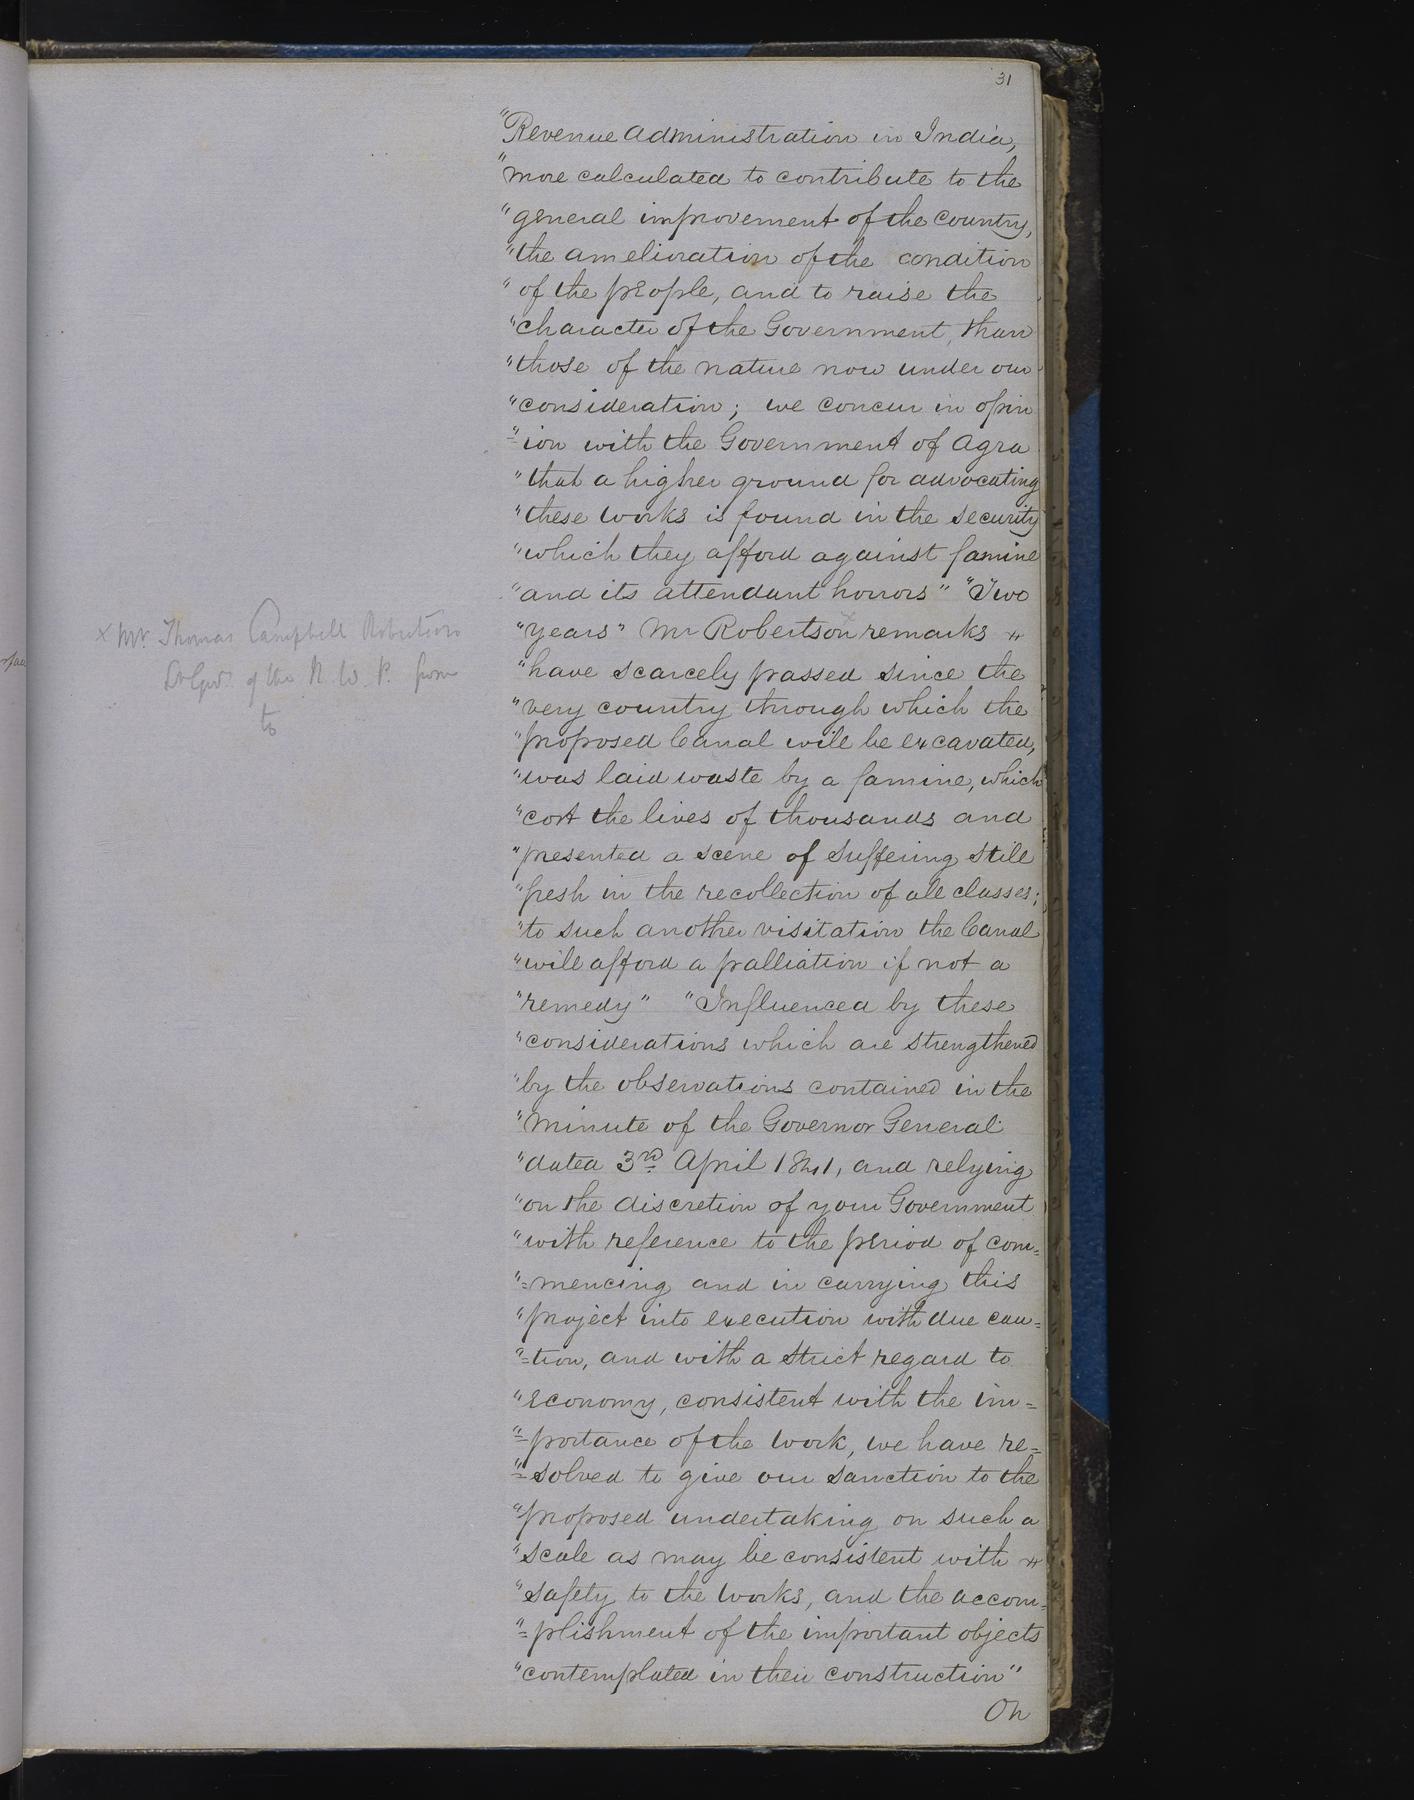 31
"Revenue Administration in India,
"more calculated to contribute to the
"general improvement of the Country,
"the amelioration of the condition
"of the people, and to raise the
"character of the Government, than
"those of the nature now under our
"consideration; we concur in opin
"=ion with the Government of Agra
"that a higher ground for advocating
"these works is found in the security
"which they afford against famine
"and its attendant horrors" "Two
"years" Mr Robertson x remarks "
"have scarcely passed since the
"very country through which the
"proposed Canal will be excavated,
"was laid waste by a famine, which
"cost the lives of thousands and
"presented a scene of suffering still
"fresh in the recollection of all classes;
"to such another visitation the Canal
"will afford a palliation if not a
"remedy" "Influenced by these
"considerations which are strengthened
"by the observations contained in the
"Minute of the Governor General
"dated 3rd April 1841, and relying
"on the discretion of your Government
"with reference to the period of com=
"=mencing and in carrying this
"project into execution with due cau=
"=tion, and with a strict regard to
"Economy, consistent with the im=
"=portance of the work, we have re=
"=solved to give our sanction to the
"proposed undertaking on such a
"scale as may be consistent with
"safety to the works, and the accom=
"=plishment of the important objects
"contemplated in their construction"
On
x Mr. Thomas Campbell Robertson
Lt Govr. of the N. W. P. from
to